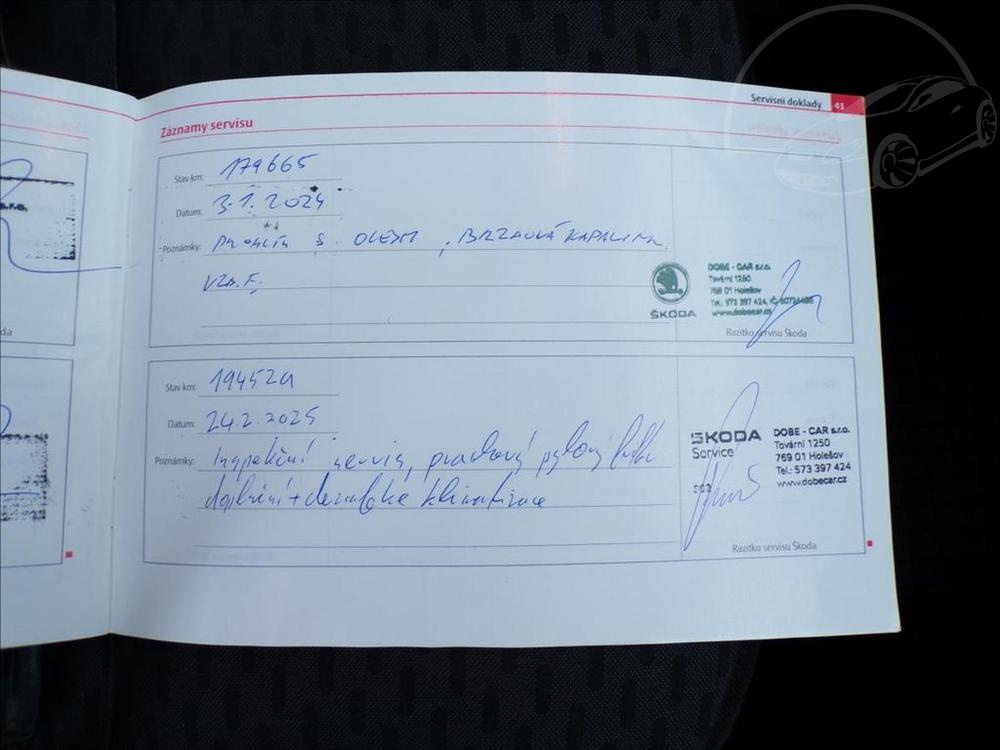 Servisní doklady 41
Záznamy servisu
Stav km: 179665
Datum: 3.1.2024
Poznámky: S OLEJM, BRZDOVÁ KAPALINA
ŠKODA
DOBE - CAR s.r.o.
Tovární 1250
769 01 Holešov
Tel.: 573 397 424, IČ:
www.dobecar.cz
Razítko servisu Škoda
Stav km:
Datum: 24.2.2025
Poznámky: Inspekční servis, prachový pylový filtr
doplnění + dezinfekce klimatizace
ŠKODA
Service
DOBE - CAR s.r.o.
Tovární 1250
769 01 Holešov
Tel.: 573 397 424
www.dobecar.cz
Razítko servisu Škoda
s.r.o.
da